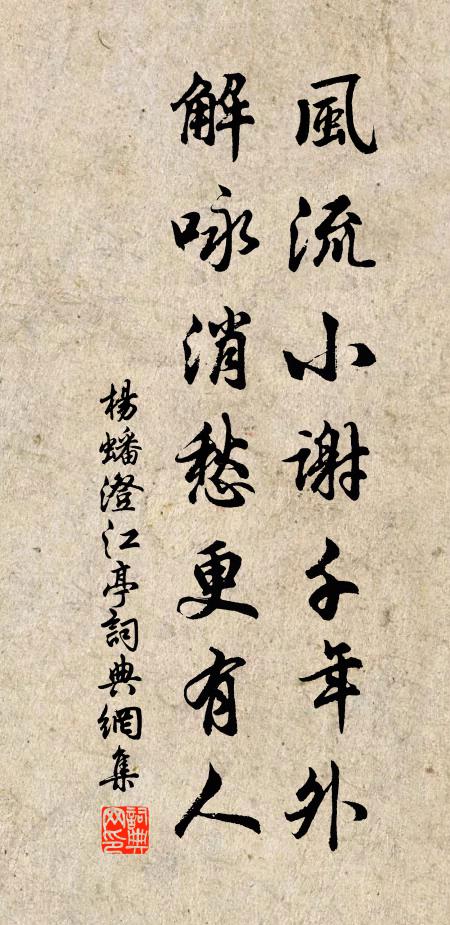 風流小谢千年外
解咏消愁更有人
楊蟠澄江亭詞典網集
詞典网印